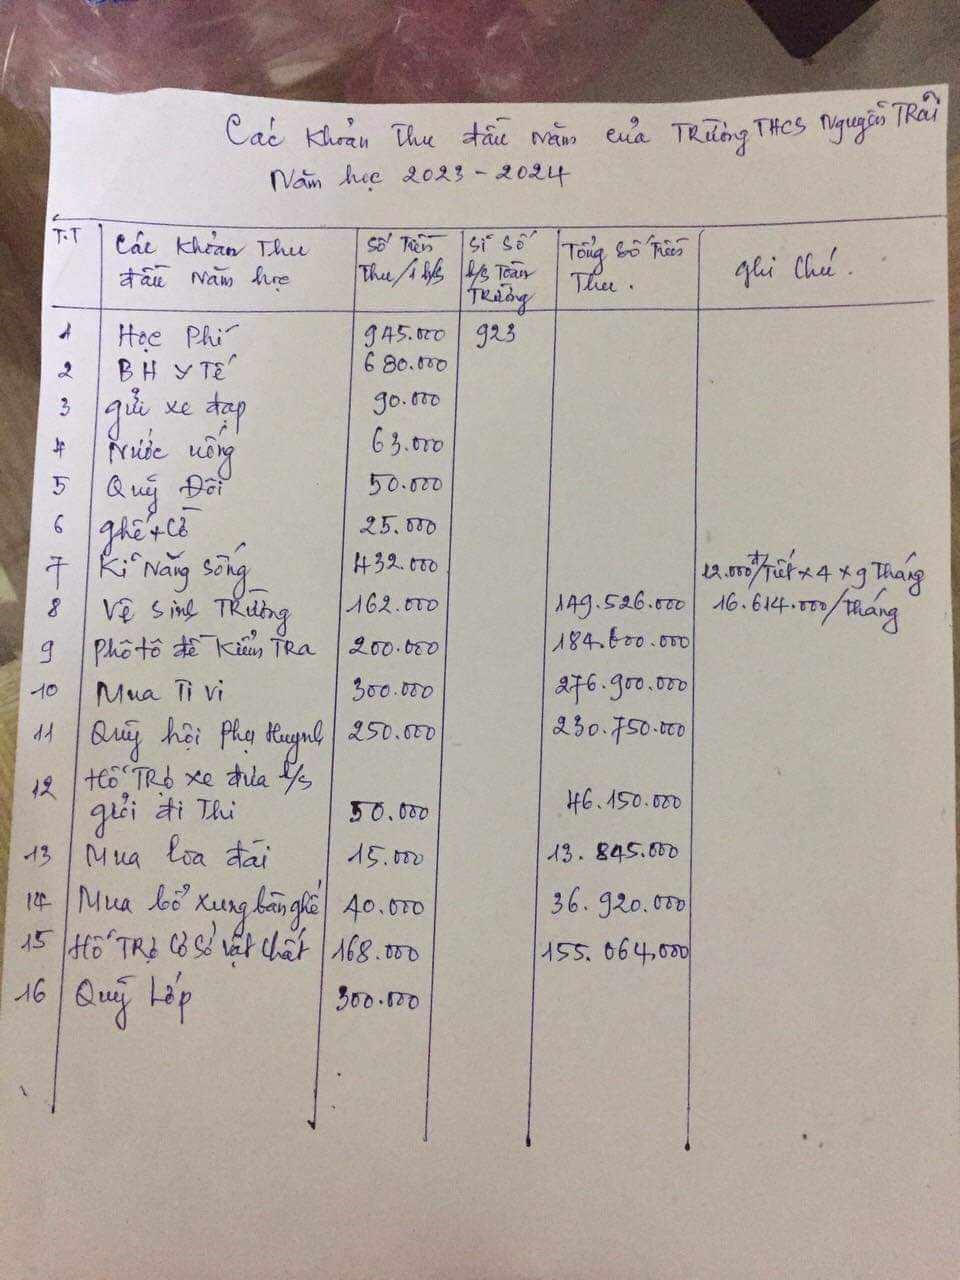 Các khoản thu đầu năm của Trường THCS Nguyễn Trãi
Năm học 2023 - 2024
T.T Các khoản thu đầu năm học Số tiền thu/1 h/s Sĩ số h/s toàn trường Tổng số tiền thu. Ghi chú.
1 Học phí 945.000 923
2 BH y tế 680.000
3 Gửi xe đạp 90.000
4 Nước uống 63.000
5 Quỹ Đội 50.000
6 Ghế + Cờ 25.000
7 Kĩ năng sống 432.000 12.000đ/Tiết x 4 x 9 tháng
8 Vệ sinh trường 162.000 149.526.000 16.614.000/tháng
9 Phôtô đề kiểm tra 200.000 184.600.000
10 Mua Ti vi 300.000 276.900.000
11 Quỹ hội phụ huynh 250.000 230.750.000
12 Hỗ trợ xe đưa h/s
giỏi đi thi 50.000 46.150.000
13 Mua loa đài 15.000 13.845.000
14 Mua bổ xung bàn ghế 40.000 36.920.000
15 Hỗ trợ cơ sở vật chất 168.000 155.064.000
16 Quỹ lớp 300.000